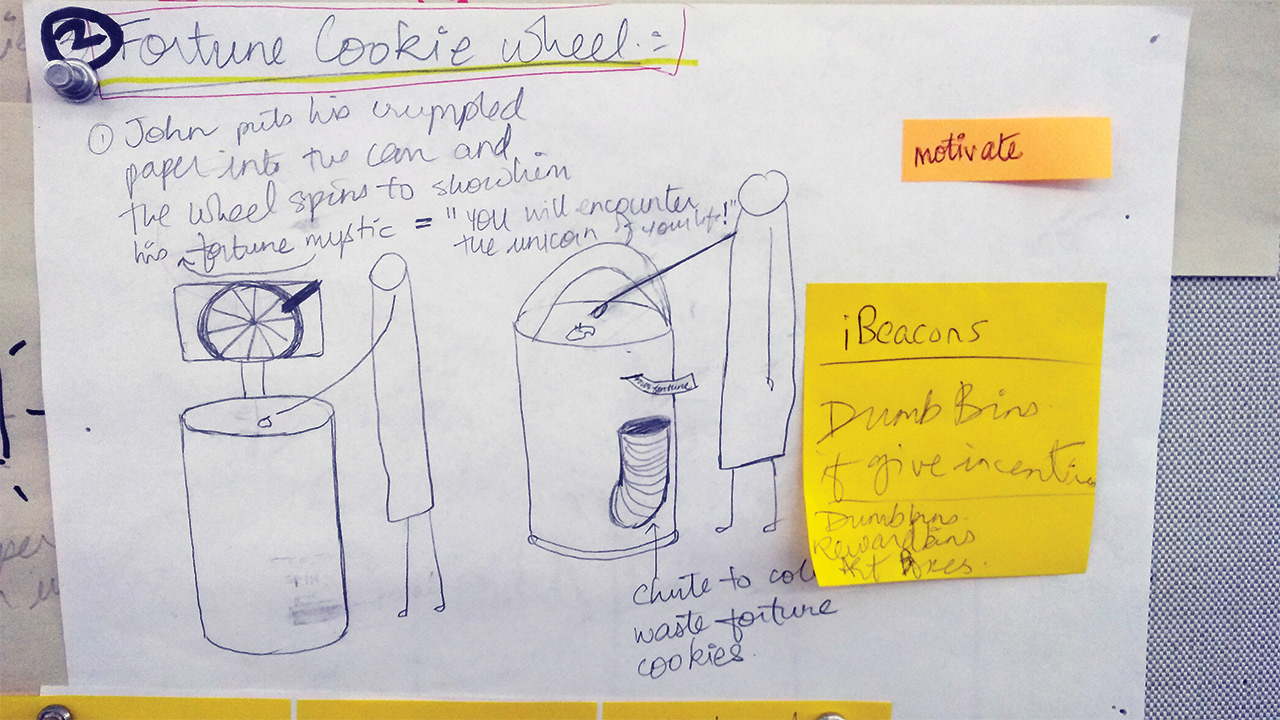 2 Fortune Cookie Wheel :-
① John puts his crumpled
paper into the can and
the wheel spins to show him
his fortune mystic = "You will encounter
the unicorn of your life!"
motivate
fortune
iBeacons
Dumb Bins
if give incentive
Dumbbins.
Rewardbins
Art Boxes.
Chute to col
waste fortune
cookies.
per